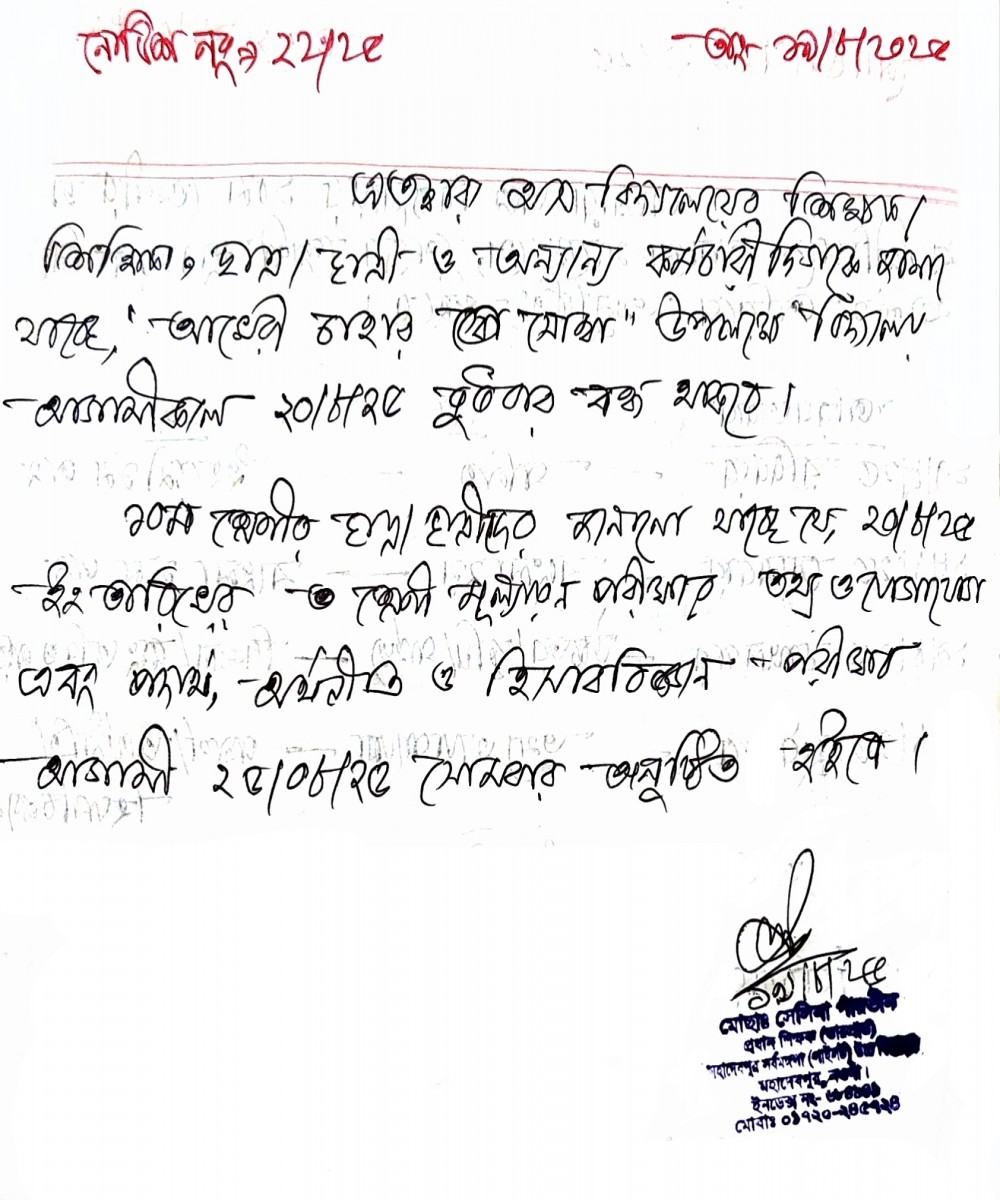 নোটিশ নং ২২/২৫
তাং ১৯/৮/২০২৫
এতদ্বারা অত্র বিদ্যালয়ের শিক্ষক/
শিক্ষিকা, ছাত্র/ছাত্রী ও অন্যান্য কর্মচারীদিগকে জানানো
যাচ্ছে, "আখেরী চাহার সোম্বা" উপলক্ষে বিদ্যালয়
আগামীকাল ২০/৮/২৫ বুধবার বন্ধ থাকবে।
১০ম শ্রেণীর ছাত্র/ছাত্রীদের জানানো যাচ্ছে যে, ২০/৮/২৫
ইং তারিখের শ্রেণী মূল্যায়ন পরীক্ষার তথ্য ও যোগাযোগ
এবং পদার্থ, অর্থনীতি ও হিসাববিজ্ঞান পরীক্ষার
আগামী ২৫/০৮/২৫ সোমবার অনুষ্ঠিত হইবে।
১৯/৮/২৫
মোছাঃ সেলিনা পারভীন
প্রধান শিক্ষক (ভারপ্রাপ্ত)
মহাদেবপুর সর্বমঙ্গলা (পাইলট) উচ্চ
মহাদেবপুর, নওগাঁ।
ইনডেক্স নং-
মোবাঃ ০১৭২০-২৪৫৭২৪